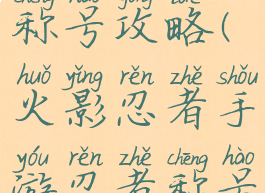 chēng hào gōng lüè
称号攻略(
huǒ yǐng rěn zhě shǒu
火影忍者手
yóu rěn zhě chēng hào
游忍者称号